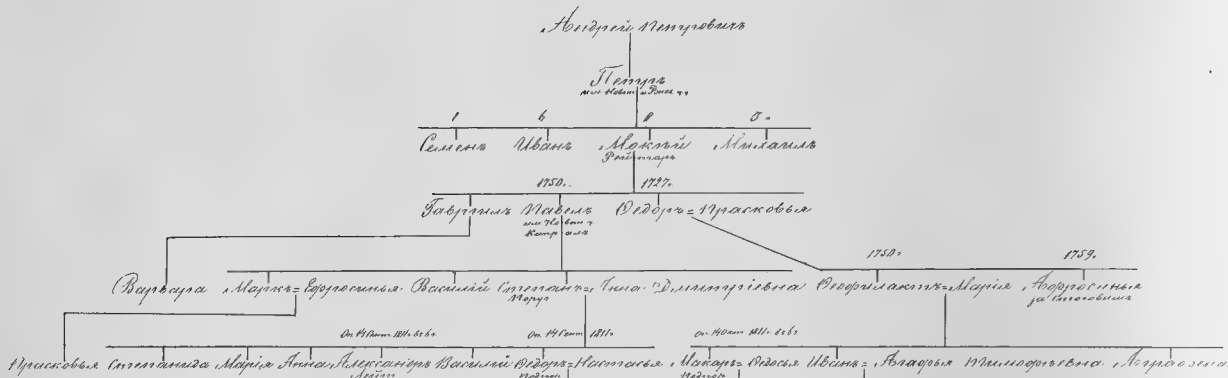 Андрей Петровичъ
Петръ
Семенъ Иванъ Мокѣй Михаилъ
Рейтаръ
1750 г. 1727 г.
Гаврилъ Павелъ Ѳедоръ = Прасковья
1750 г. 1759 г.
Варвара Маркъ = Ефросинья Василій Степанъ = Анна Дмитріевна Ѳеофилактъ = Марія Афросинья
Поруч за Стоговымъ
1811 1811 г.
Прасковья Степанида Марія Анна Александръ Василій Ѳедоръ = Настасья Макаръ = Ѳедосья Иванъ = Агафья Тимофѣевна Аграфена